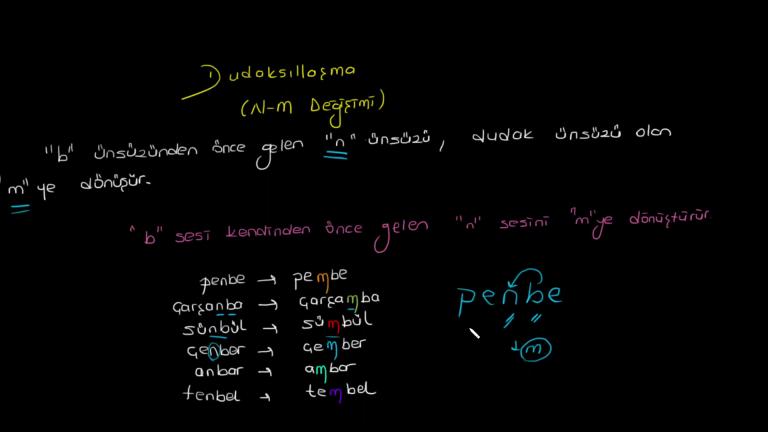 Dudaksıllaşma
(N-M Değişimi)
"b" ünsüzünden önce gelen "n" ünsüzü, dudak ünsüzü olan
"m"ye dönüşür.
"b" sesi kendinden önce gelen "n" sesini "m"ye dönüştürür
penbe → pembe
çarşanba → çarşamba
sünbül → sümbül
çenber → çember
anbar → ambar
tenbel → tembel
penbe
m